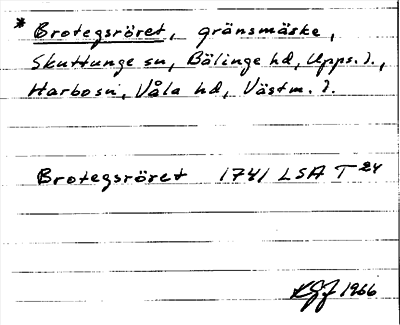 * Brotegsröret, gränsmäske,
Skuttunge sn, Bälinge hd, Upps. l.,
Harbo sn, Våla hd, Västm. l.
Brotegsröret 1741 LSA T 24
KGJ 1966